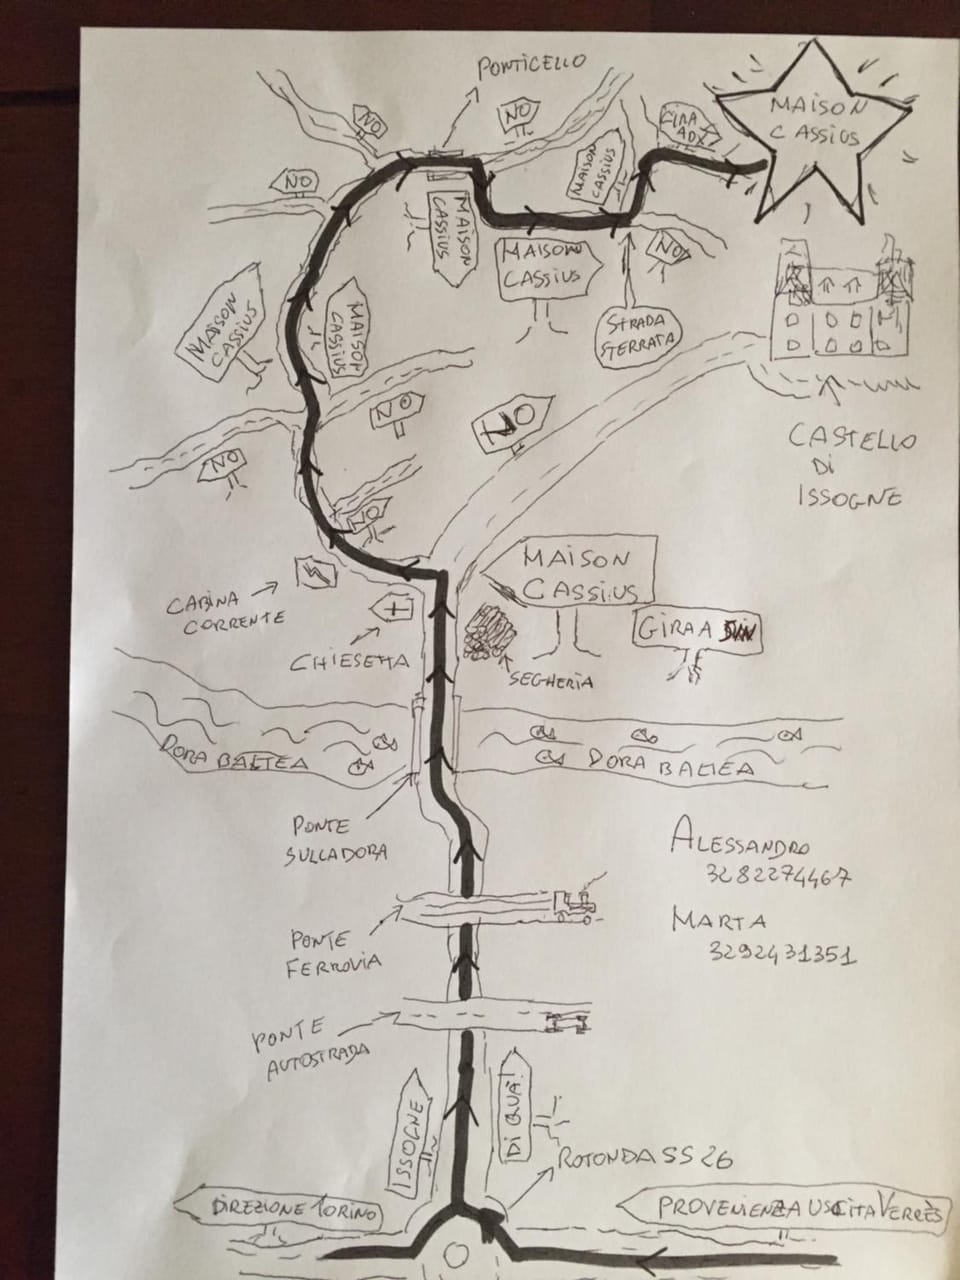 PONTICELLO
NO
NO
GIRA
A DX
MAISON
CASSIUS
NO
MAISON
CASSIUS
MAISON
CASSIUS
MAISON
CASSIUS
NO
STRADA
STERRATA
MAISON
CASSIUS
MAISON
CASSIUS
NO
NO
NO
NO
CASTELLO
DI
ISSOGNE
MAISON
CASSIUS
CABINA
CORRENTE
GIRA A SIN
CHIESETTA
SEGHERIA
DORA BALTEA
DORA BALTEA
PONTE
SULLA DORA
ALESSANDRO
3282274467
MARTA
3292431351
PONTE
FERROVIA
PONTE
AUTOSTRADA
ISSOGNE
DI QUÀ!
ROTONDA SS 26
DIREZIONE TORINO
PROVENIENZA USCITA VERRÈS